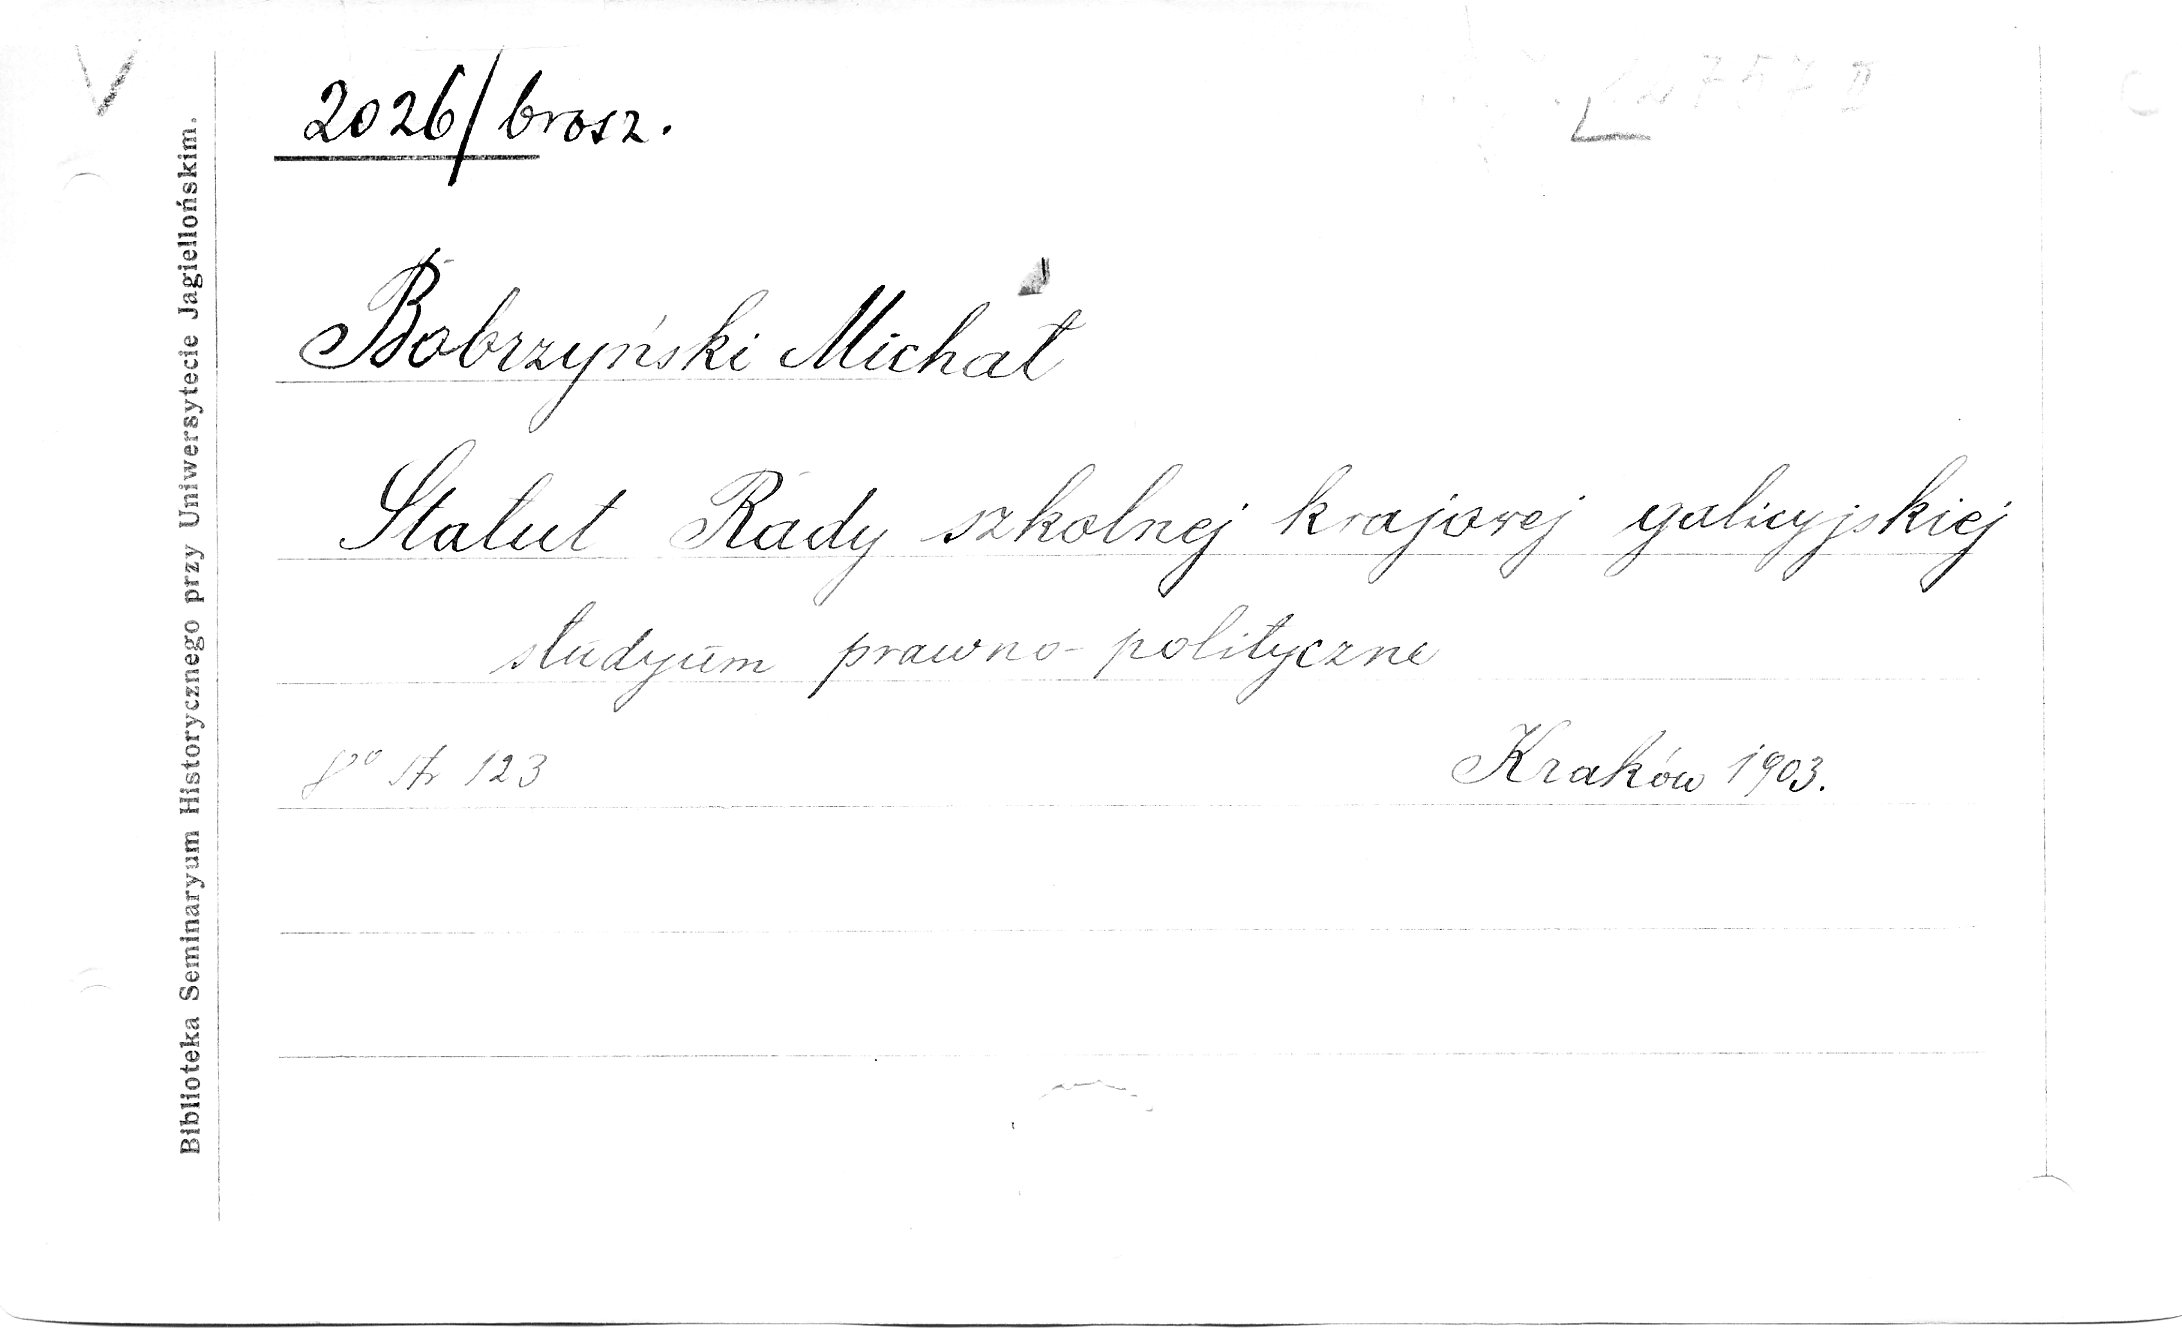 2026/brosz.
757 II
Bobrzyński Michał
Statut Rady szkolnej krajowej galicyjskiej
studyum prawno-polityczne
8vo str 123
Kraków 1903.
Biblioteka Seminaryum Historycznego przy Uniwersytecie Jagiellońskim.